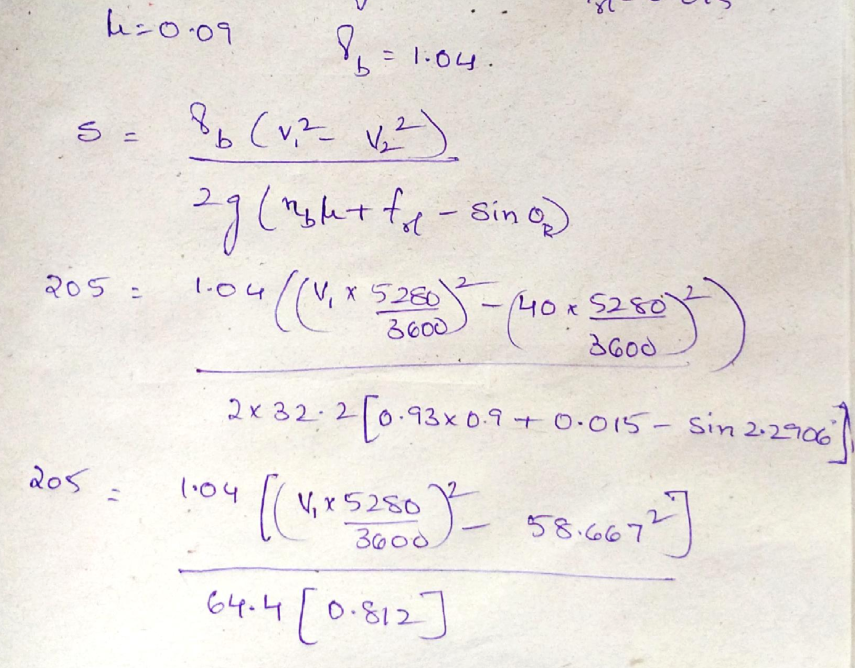 μ=0.09
γb = 1.04.
S = γb (V₁² - V₂²) / 2g (ηbμ + frl - sin θR)
205 = 1.04 ((V₁ x 5280/3600)² - (40 x 5280/3600)²) / 2x 32.2 [0.93x0.9 + 0.015 - sin 2.2906°]
205 = 1.04 [(V₁ x 5280/3600)² - 58.667²] / 64.4 [0.812]